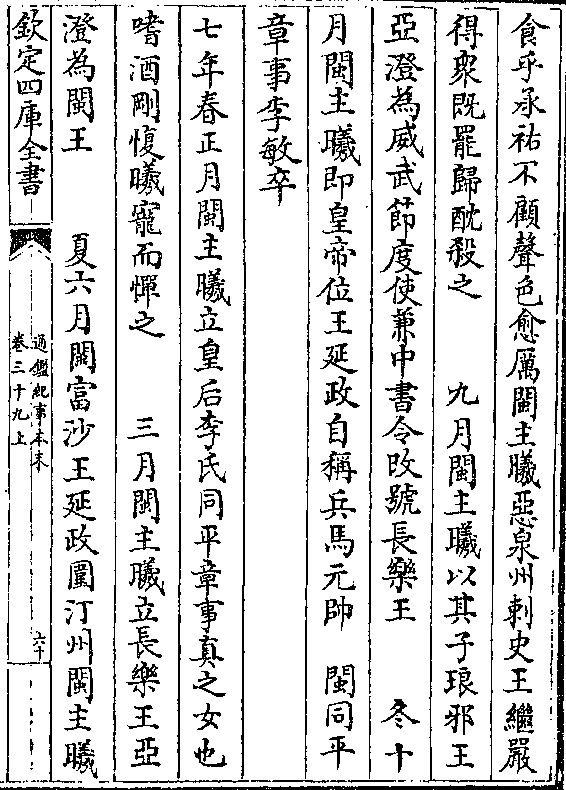 食乎承祐不顧聲色愈厲閩主曦惡泉州刺史王繼嚴
得衆既罷歸酖殺之　九月閩主曦以其子琅邪王
亞澄為威武節度使兼中書令改號長樂王　冬十
月閩主曦即皇帝位王延政自稱兵馬元帥　閩同平
章事李敏卒
七年春正月閩主曦立皇后李氏同平章事真之女也
嗜酒剛愎曦寵而憚之　三月閩主曦立長樂王亞
澄為閩王　夏六月閩富沙王延政圍汀州閩主曦
欽定四庫全書
通鑑紀事本末
卷三十九上
六十